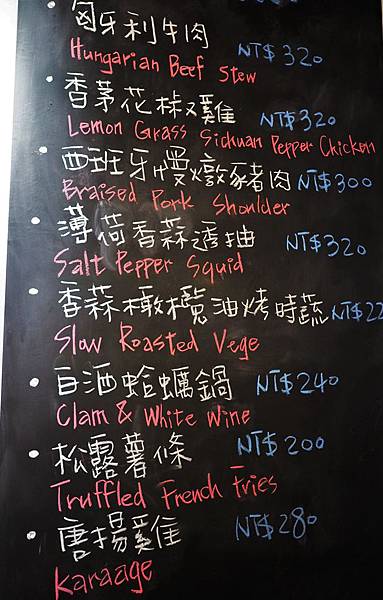 匈牙利牛肉 NT$320
Hungarian Beef Stew
• 香茅花椒雞 NT$320
Lemon Grass Sichuan Pepper Chicken
• 西班牙慢燉豬肉 NT$300
Braised Pork Shoulder
• 薄荷香蒜透抽 NT$320
Salt Pepper Squid
• 香蒜橄欖油烤時蔬 NT$22
Slow Roasted Vege
• 白酒蛤蠣鍋 NT$240
Clam & White Wine
• 松露薯條 NT$200
Truffled French Fries
• 唐揚雞 NT$280
Karaage